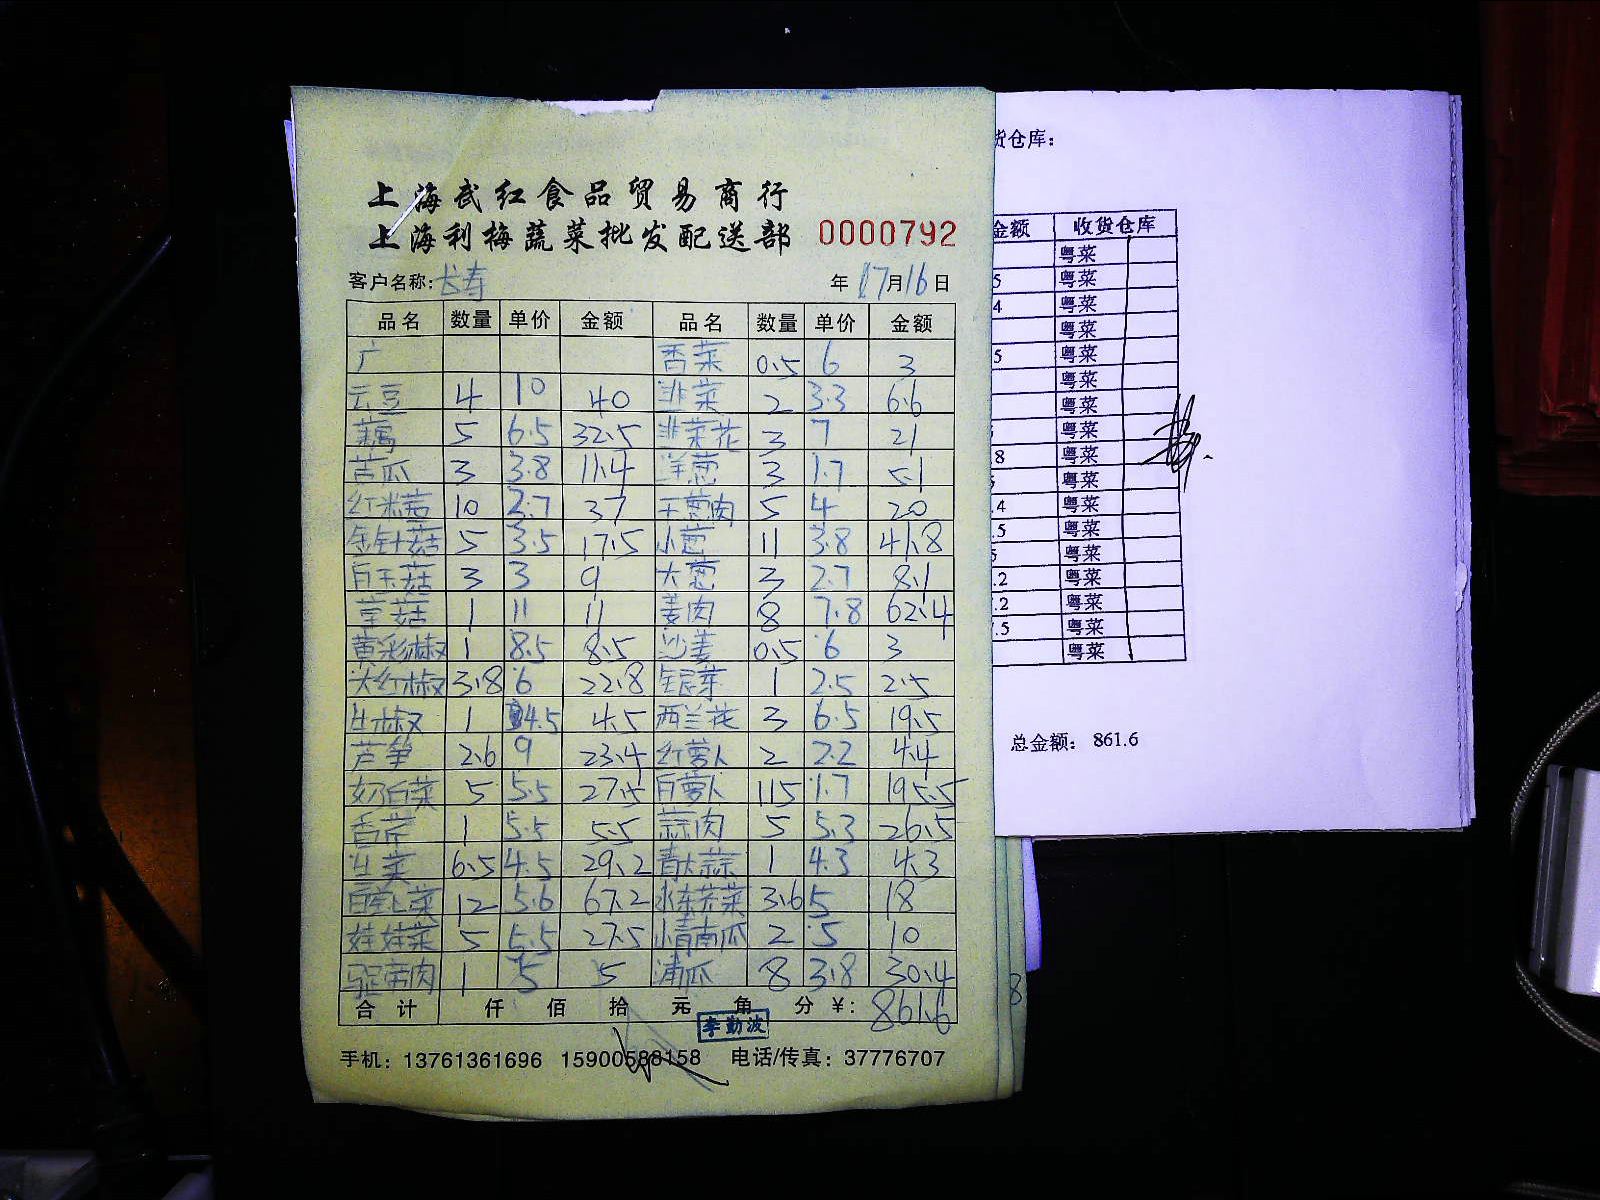 上海武红食品贸易商行
上海利梅蔬菜批发配送部 0000792
客户名称:长寿 年 17月16日
品名 数量 单价 金额 品名 数量 单价 金额
广 香菜 0.5 6 3
云豆 4 10 40 韭菜 2 3.3 6.6
藕 5 6.5 32.5 韭菜花 3 7 21
苦瓜 3 3.8 11.4 洋葱 3 1.7 5.1
红米苋 10 2.7 37 干葱肉 5 4 20
金针菇 5 3.5 17.5 小葱 11 3.8 41.8
白玉菇 3 3 9 大葱 3 2.7 8.1
草菇 1 11 11 姜肉 8 7.8 62.4
黄彩椒 1 8.5 8.5 沙姜 0.5 6 3
尖红椒 3.8 6 22.8 银芽 1 2.5 2.5
尖椒 1 4.5 4.5 西兰花 3 6.5 19.5
芦笋 2.6 9 23.4 红萝卜 2 2.2 4.4
奶白菜 5 5.5 27.5 白萝卜 115 1.7 195.5
香芹 1 5.5 5.5 蒜肉 5 5.3 26.5
生菜 6.5 4.5 29.2 青大蒜 1 4.3 4.3
12 5.6 67.2 水东芥菜 3.6 5 18
娃娃菜 5 5.5 27.5 小青南瓜 2 5 10
1 5 5 浦瓜 8 3.8 30.4
合计 仟 佰 拾 元 角 分 ¥: 861.6
李勤波
手机: 13761361696 15900588158 电话/传真: 37776707
货仓库:
金额 收货仓库
粤菜
5 粤菜
4 粤菜
粤菜
5 粤菜
粤菜
粤菜
粤菜
8 粤菜
粤菜
.4 粤菜
.5 粤菜
5 粤菜
.2 粤菜
.2 粤菜
.5 粤菜
粤菜
总金额: 861.6